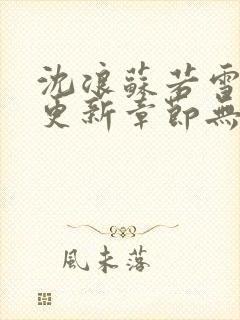 沈浪蘇若雪
更新章節無
風未落